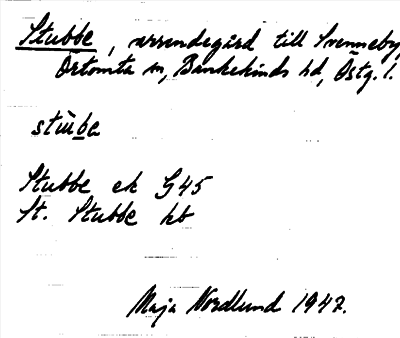 Stubbe, arrendegård till Svenneby,
Örtomta sn, Bankekinds hd, Östg. l.
stùbe
Stubbe ek G45
St. Stubbe kb
Maja Nordlund 1947.